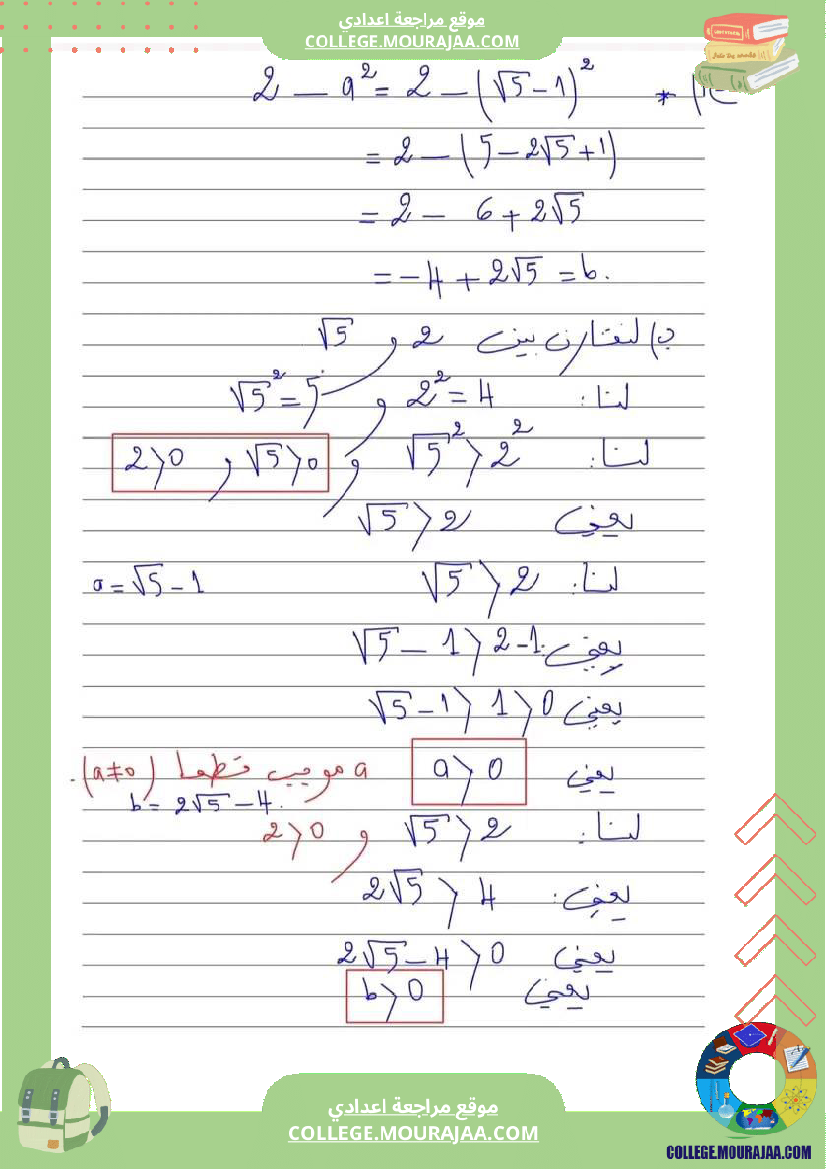 موقع مراجعة اعدادي
COLLEGE.MOURAJAA.COM
* 2 - a² = 2 - (√5 - 1)²
= 2 - (5 - 2√5 + 1)
= 2 - 6 + 2√5
= -4 + 2√5 = b.
ب) لنقارن بين 2 و √5
لنا: 2² = 4 و √5² = 5
لنا: √5² > 2² و √5 > 0 و 2 > 0
يعني √5 > 2
لنا: √5 > 2 a = √5 - 1
يعني: √5 - 1 > 2 - 1
يعني √5 - 1 > 1 > 0
يعني a > 0 a موجب قطعا (a ≠ 0).
b = 2√5 - 4.
لنا: √5 > 2 و 2 > 0
يعني: 2√5 > 4
يعني 2√5 - 4 > 0
يعني b > 0
موقع مراجعة اعدادي
COLLEGE.MOURAJAA.COM
COLLEGE.MOURAJAA.COM